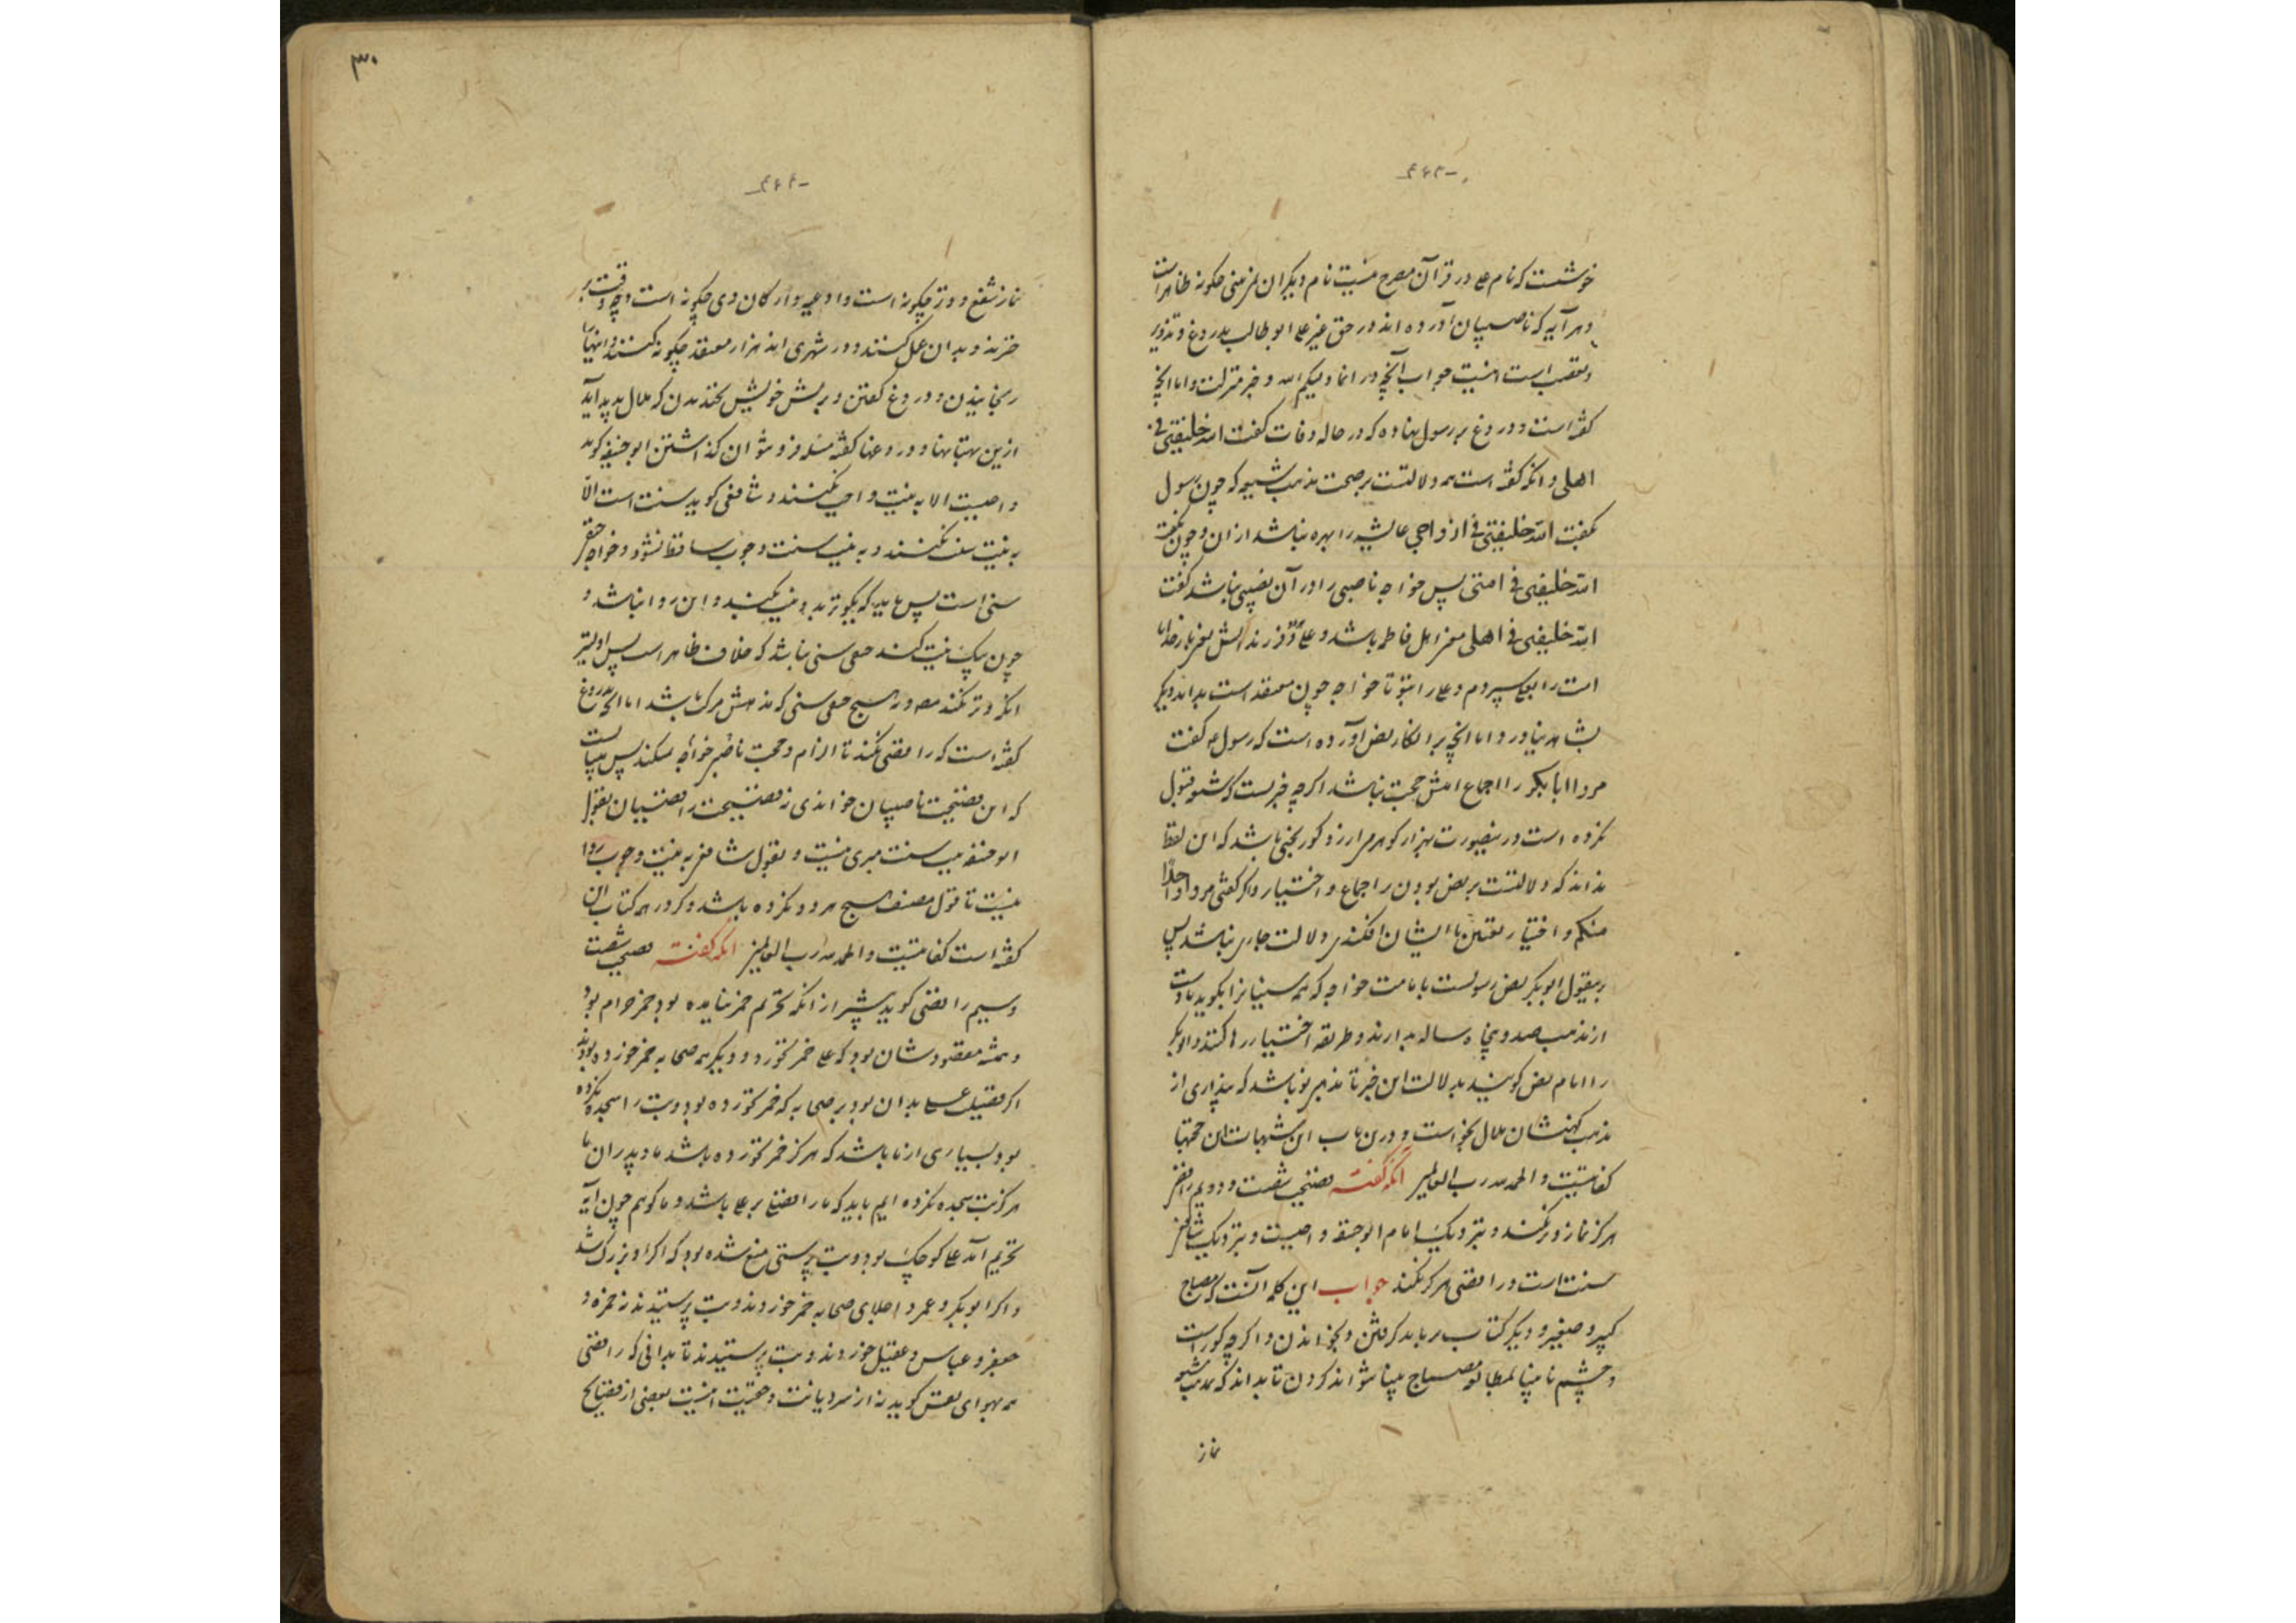 خوشست که نام علی در قرآن مصرح نیست نام دیگران بفرمنی چکونه ظاهر است
و هر آیه که ناصبیان آورده اند در حق غیر علی ابوطالب بدروغ و تزویر
و تعصب است اینست جواب آنچه در انما ولیکم الله و خبر منزلت و اما آنچ
کفته است و دروغ بر رسول نهاده که در حاله وفات کفت الله خلیفتی فی
اهلی و آنکه کفته است همه دلالتست بر صحت مذهب شیعه که چون رسول
بکفت الله خلیفتی فی ازواجی عایشه را بهره نباشد از ان و چون بکفت
الله خلیفتی فی امتی پس خواجه ناصبی را در آن نصیبی نباشد کفت
الله خلیفتی فی اهلی مکر اهل فاطمه باشد و علی و فرزندانش یعنی بار خدایا
امت را بعلی سپردم و علی را بتو تا خواجه چون معتقد است بداند و دیکر
بشاهد نیاورد و اما آنچه بر انکار نص آورده است که رسول ع کفت
مروا ابابکر را اجماع امتش حجت نباشد اکرچه خبریست که شیعه قبول
نکرده است در ینصورت بهزار کوهر می ارزد کور بختی باشد که این لفظ
نداند که دلالتست بر نص بودن و اجماع و اختیار و اکر کفتی مروا واحدا
منکم و اختیار تعیین با ایشان افکندی دلالت جاری نباشد پس
بقول ابوبکر نص رسولست بامامت خواجه که همه سنیانرا بکوید تا دست
از مذهب صد و پنجاه ساله بدارند و طریقه اختیار رها کنند و ابوبکر
را امام نص کویند بدلالت این خبر تا مذهبی نو باشد که پنداری از
مذهب کهنشان ملال بخواست و درین باب این شبهات این حجتها
کفایتست و الحمد لله رب العالمین آنکه کفته فضیحت شصت و دویم رافضی
هرکز نماز وتر نکند و بنزدیک امام ابوحنیفه واجبست و بنزدیک شافعی
سنت است و رافضی هرکز نکند جواب این کلمه آنست که مصباح
کبیر و صغیر و دیکر کتاب بر باید کرفتن و بخواندن و اکرچه کور است
و چشم نابینا بمطالعه مصباج بینا شواند کردن تا بداند که بمذهب شیعه
نماز
نماز شفع و وتر چکونه است و ادعیه و ارکان وی چکونه است و چه وقت بر
خیزند و بدان عمل کنند و در شهری اند هزار معتقد چکونه کنند و انتها را
رنجانیدن و دروغ کفتن و بریش خویش بخندیدن که ملال پدید آید
ازین بهتانها و دروغها کفته مسله فرو شوان کذاشتن ابوحنیفه کوید
واجبست الا به نیت واجب نکنند و شافعی کوید سنت است الا
به نیت سنت نکنند و به نیت سنت وجوب ساقط نشود و خواجه حنفی
سنی است پس باید که بکوید تا بدو نیت بکند و این روا نباشد و
چون یک نیت کند حنفی سنی نباشد که خلاف ظاهر است پس اولیتر
آنکه وتر نکند مصور هیچ حنفی سنی که مذهبش مرکب باشد اما آنکه بدروغ
کفته است که رافضی نکند تا الزام و حجت ناصبی خواجه بکند پس بایست
که این فضیحت ناصبیان خواندی نه فضیحت رافضیان بقول
ابوحنیفه به نیت سنت مجری نیست و بقول شافعی به نیت وجوب روا
نیست تا قول مصنف هیچ هر دو نکرده باشد و کر در همه کتاب این
کفته است کفایتست و الحمد لله رب العالمین آنکه کفته فضیحت شصت
و سیم رافضی کوید پیشتر از آنکه تحریم خمر بیامده بود خمر حرام بود
و همه مقصودشان بود که علی خمر نخورد و دیکر همه صحابه خمر خورده بودند
اکر فضیلت علی بدان بود بر صحابه که خمر نخورده بود و بت را سجده نکرده
بود بسیاری از ما باشد که هرکز خمر نخورده باشد ما و پدران ما
هرکز بت سجده نکرده ایم باید که ما را فضیلت بر علی باشد و ما کوئیم چون آیه
تحریم آمد علی کوچک بود و بت پرستی منع شده بود که اکر او بزرک شد
و اکر ابوبکر و عمر و اجلای صحابه خمر خوردند و بت پرستیدند نه حمزه و
جعفر و عباس و عقیل خوردند و بت پرستیدند تا بدانی که رافضی
همه بهوای نفس کوید نه از سر دیانت و حقیت اینست بعضی از فضایح